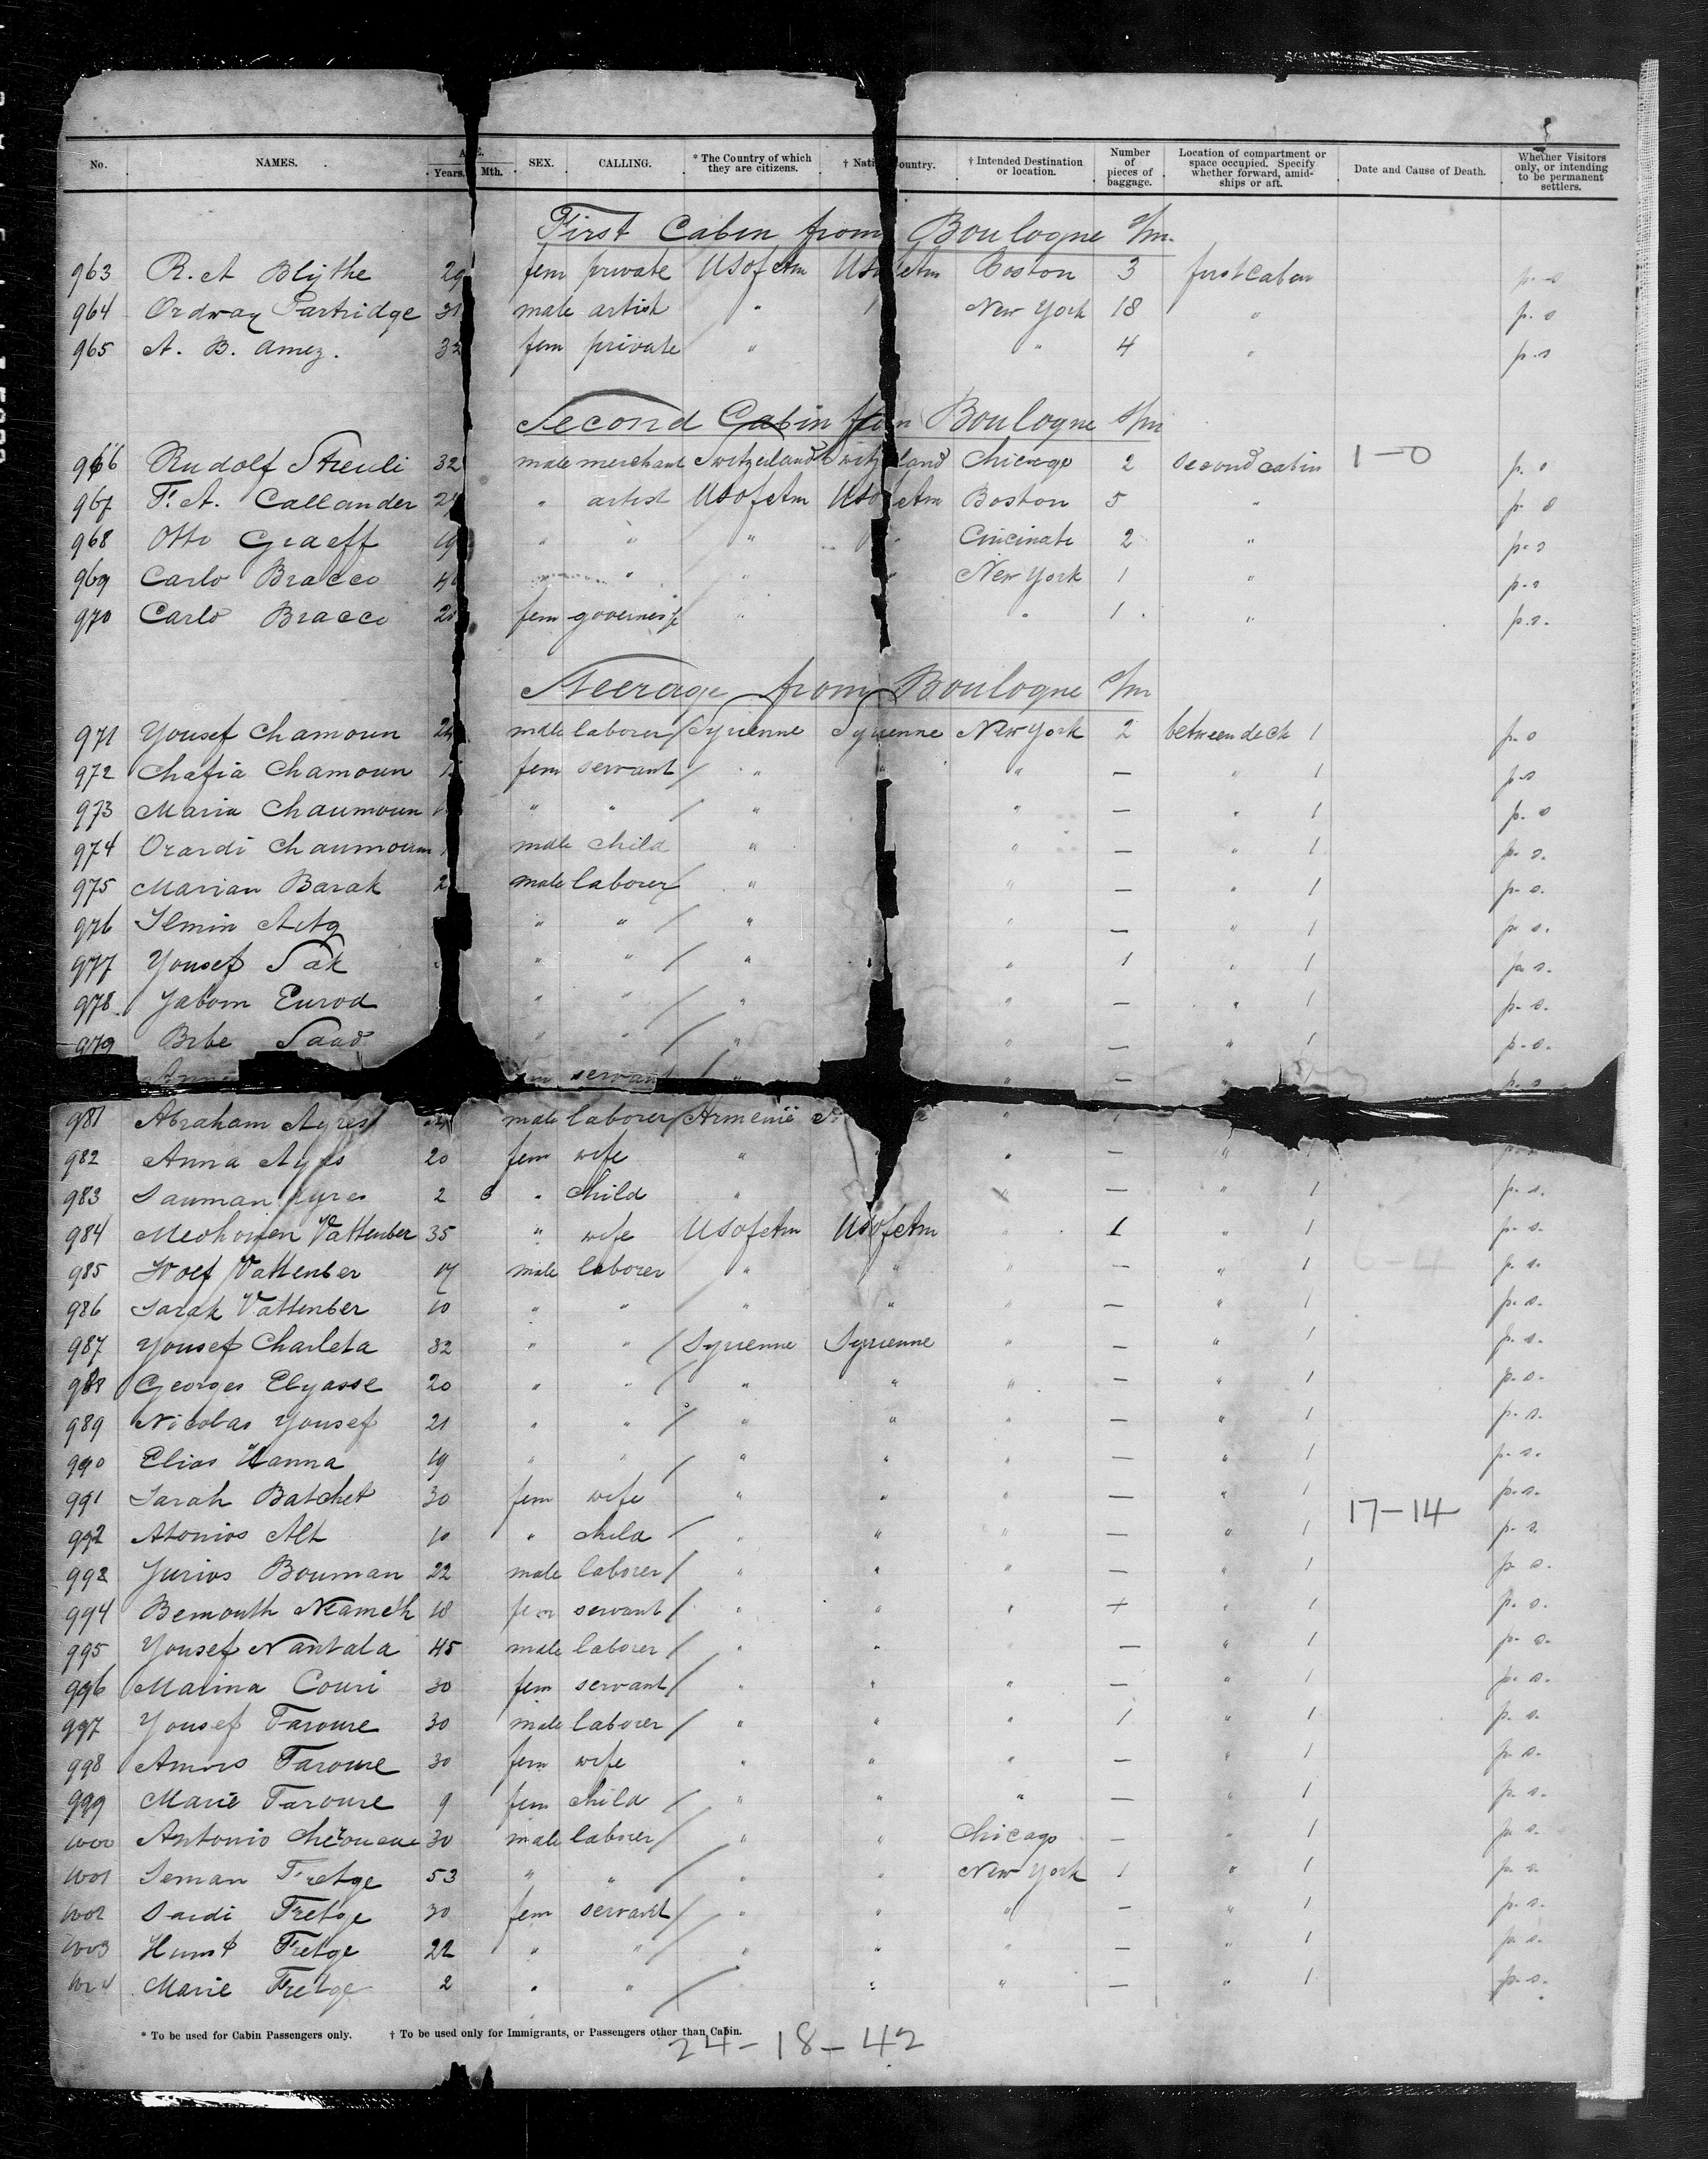 No. NAMES. AGE. Years. Mth. SEX. CALLING. * The Country of which they are citizens. † Nati Country. † Intended Destination or location. Number of pieces of baggage. Location of compartment or space occupied. Specify whether forward, amidships or aft. Date and Cause of Death. Whether Visitors only, or intending to be permanent settlers.
First Cabin from Boulogne s/m.
963 R. A Blythe 29 fem private USofAm USofAm Boston 3 first cabin p. s
964 Ordway Partridge 31 male artist " New York 18 " p. s
965 A. B. Amez. 32 fem private " " 4 " p. s
Second Cabin from Boulogne s/m
966 Rudolf Streuli 32 male merchant Switzerland Switzerland Chicago 2 second cabin 1-0 p. s
967 F. A. Callander " artist USofAm USofAm Boston 5 " p. s
968 Otto Graeff 19 " " " " Cincinati 2 " p. s
969 Carlo Bracco " " New York 1 " p. s
970 Carlo Bracco fem governess " " 1 " p. s.
Steerage from Boulogne s/m
971 Yousef Chamoun male laborer / Syrienne Syrienne New York 2 between deck 1 p. s
972 Chafia Chamoun fem servant / " " " — " 1 p. s
973 Maria Chaumoun " " / " " — " 1 p. s
974 Orardi Chaumoum male child " " — " 1 p. s.
975 Marian Barak male laborer / " " — " 1 p. s.
976 " " / " " — " 1 p. s.
977 Yousef Sak " " / " " 1 " 1 p. s.
978 Jabom Eurod " " / " " — " 1 p. s.
979 Bebe Saad " " / " " — " 1 p. s.
servant / " " — p. s
981 Abraham Ayres male laborer / Armenie "
982 Anna Ayres 20 fem wife " " — " 1
983 Sauman Ayres 2 6 " child " " — " 1 p. s.
984 Vattenber 35 " wife USofAm USofAm " 1 " 1 p. s.
985 Wolf Vattenber 17 male laborer " " " — " 1 p. s.
986 Sarah Vattenber 10 " " / " " " — " 1 p. s.
987 Yousef Charleta 32 " " / Syrienne Syrienne " — " 1 p. s.
988 Georges Elyasse 20 " " / " " " — " 1 p. s.
989 Nicolas Yousef 21 " " / " " " — " 1 p. s.
990 Elias Hanna 19 " " / " " " — " 1 p. s.
991 Sarah Batchet 30 fem wife " " " — " 1 17-14 p. s.
992 Atonios Alt 10 " child / " " " — " 1 p. s.
993 Jurios Bouman 22 male laborer / " " " — " 1 p. s.
994 Bemouth Neameh 18 fem servant / " " " + " 1 p. s.
995 Yousef Nantala 45 male laborer / " " " — " 1 p. s.
996 Marina Couri 30 fem servant / " " " — " 1 p. s.
997 Yousef Faroure 30 male laborer / " " " 1 " 1 p. s.
998 Faroure 30 fem wife " " " — " 1 p. s.
999 Marie Faroure 9 fem child / " " " — " 1 p. s.
1000 Antonio 30 male laborer / " " Chicago — " 1 p. s.
1001 Seman Fretge 53 " " / " " New York 1 " 1 p. s.
1002 Saidi Fretge 30 fem servant / " " " — " 1 p. s.
1003 Fretge 22 " " / " " " — " 1 p. s.
1004 Marie Fretge 2 " " / " " — " 1 p. s.
* To be used for Cabin Passengers only. † To be used only for Immigrants, or Passengers other than Cabin.
24-18-42